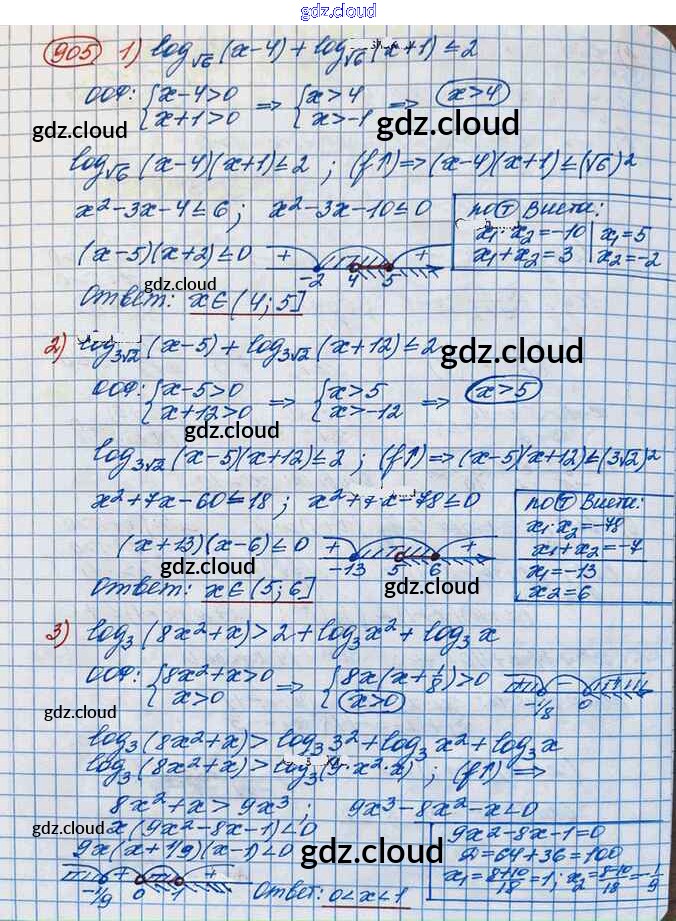 gdz.cloud
905 1) log√6 (x-4) + log√6 (x+1) ≤ 2
ООФ: {x-4>0 x+1>0 => {x>4 x>-1 => x>4
gdz.cloud gdz.cloud
log√6 (x-4)(x+1) ≤ 2 ; (f↑) => (x-4)(x+1) ≤ (√6)²
x²-3x-4≤6; x²-3x-10≤0
по Т Виета:
x₁·x₂=-10 | x₁=5
x₁+x₂=3 | x₂=-2
(x-5)(x+2)≤0 + -2 4 5 +
Ответ: x∈(4;5]
2) log3√2 (x-5) + log3√2 (x+12) ≤ 2
gdz.cloud
ООФ: {x-5>0 x+12>0 => {x>5 x>-12 => x>5
gdz.cloud
log3√2 (x-5)(x+12) ≤ 2 ; (f↑) => (x-5)(x+12) ≤ (3√2)²
x²+7x-60≤18 ; x²+7x-78≤0
по Т Виета:
x₁·x₂=-78
x₁+x₂=-7
x₁=-13
x₂=6
(x+13)(x-6)≤0 + -13 5 6 +
gdz.cloud gdz.cloud
Ответ: x∈(5;6]
3) log₃(8x²+x) > 2 + log₃x² + log₃x
ООФ: {8x²+x>0 x>0 => {8x(x+1/8)>0 x>0 + -1/8 - 0 +
gdz.cloud
log₃(8x²+x) > log₃3² + log₃x² + log₃x
log₃(8x²+x) > log₃(9·x²·x) ; (f↑) =>
8x²+x > 9x³ ; 9x³-8x²-x<0
gdz.cloud
x(9x²-8x-1)<0
9x²-8x-1=0
D=64+36=100
x₁=8+10/18=1; x₂=8-10/18=-1/9
9x(x+1/9)(x-1)<0
gdz.cloud
-1/9 + 0 - 1 +
Ответ: 0<x<1